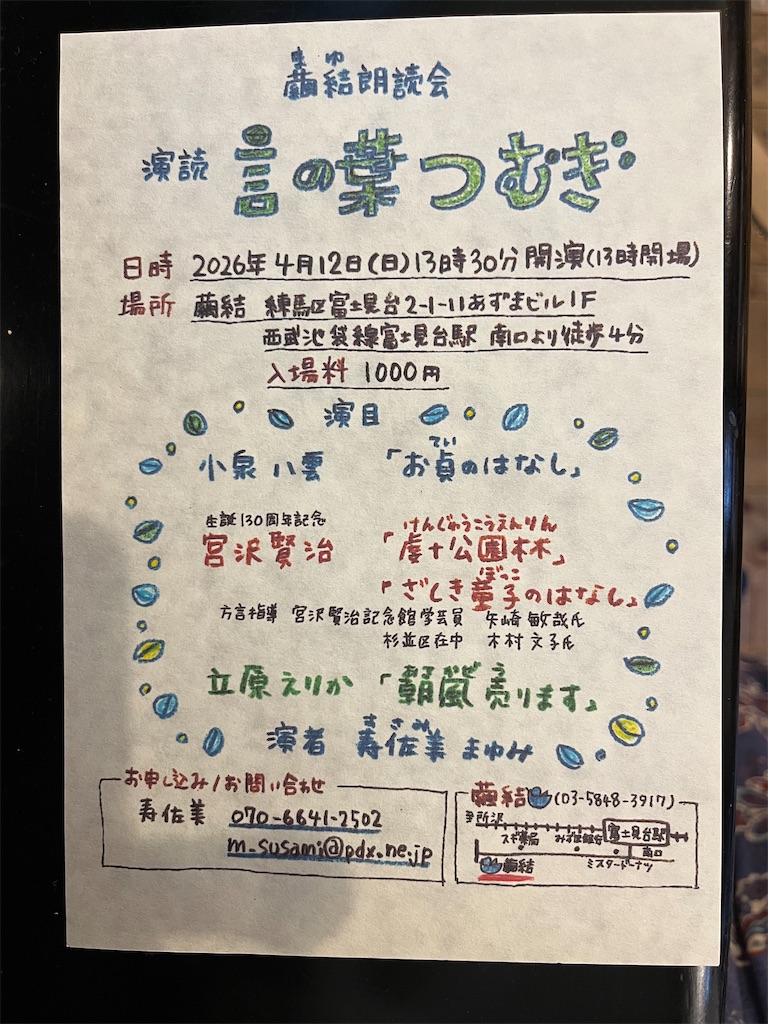 まゆ
繭結朗読会
演読 言の葉つむぎ
日時 2026年4月12日(日)13時30分開演(13時開場)
場所 繭結 練馬区富士見台2-1-11あずまビル1F
西武池袋線富士見台駅 南口より徒歩4分
入場料 1000円
演目
てい
小泉八雲 「お貞のはなし」
生誕130周年記念
けんじゅうこうえんりん
宮沢賢治 「虔十公園林」
ぼっこ
「ざしき童子のはなし」
方言指導 宮沢賢治記念館学芸員 矢崎敏哉氏
杉並区在中 木村文子氏
かぜ う
立原えりか 「覇風売ります」
すさみ
演者 寿佐美まゆみ
お申し込み/お問い合わせ
寿佐美 070-6641-2502
m-susami@pdx.ne.jp
繭結(03-5848-3917)
至所沢
富士見台駅
スギ薬局 みずほ銀行 南口
繭結 ミスタードーナツ